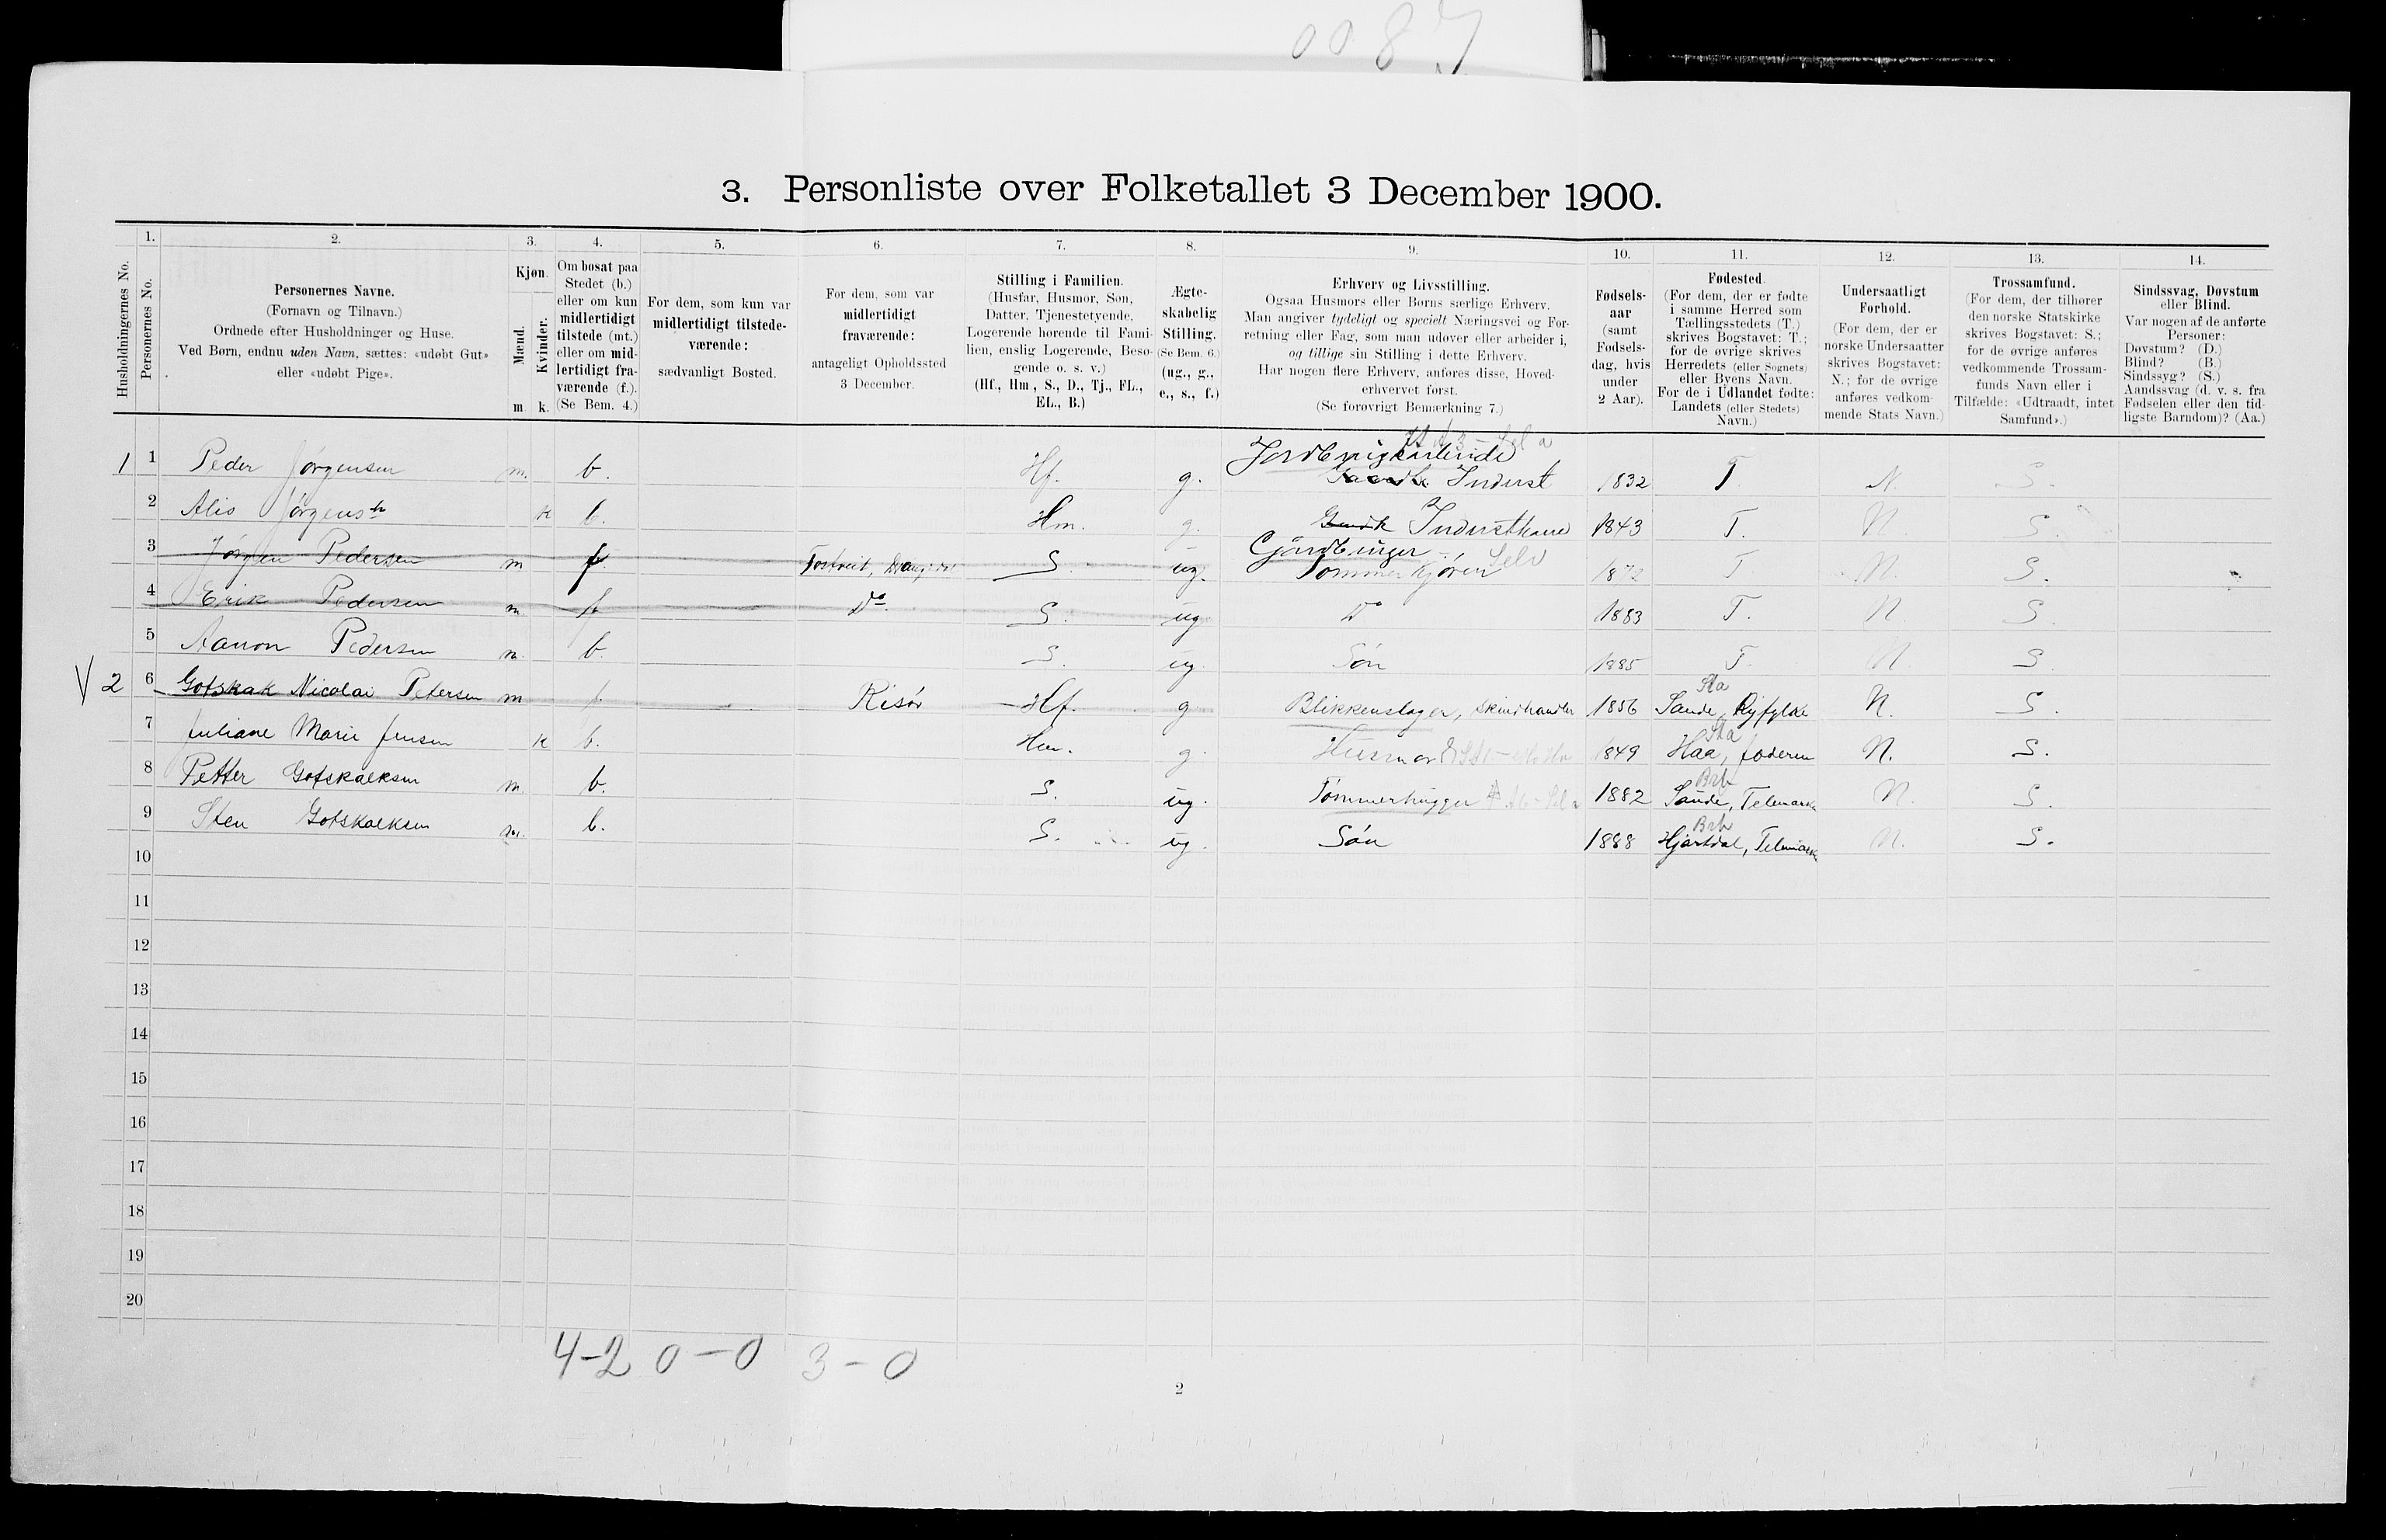 0087
3. Personliste over Folketallet 3 December 1900.
1. 2. 3. 4. 5. 6. 7. 8. 9. 10. 11. 12. 13. 14.
Husholdningernes No.
Personernes No.
Personernes Navne.
(Fornavn og Tilnavn.)
Ordnede efter Husholdninger og Huse.
Ved Børn, endnu uden Navn, sættes: «udøbt Gut»
eller «udøbt Pige».
Kjøn.
Mænd.
Kvinder.
m. k.
Om bosat paa
Stedet (b.)
eller om kun
midlertidigt
tilstede (mt.)
eller om mid-
lertidigt fra-
værende (f.).
(Se Bem. 4.)
For dem, som kun var
midlertidigt tilstede-
værende:
sædvanligt Bosted.
For dem, som var
midlertidigt
fraværende:
antageligt Opholdssted
3 December.
Stilling i Familien.
(Husfar, Husmor, Søn,
Datter, Tjenestetyende,
Logerende hørende til Fami-
lien, enslig Logerende, Besø-
gende o. s. v.)
(Hf., Hm., S., D., Tj., FL.,
EL., B.)
Ægte-
skabelig
Stilling.
(Se Bem. 6.)
(ug., g.,
e., s., f.)
Erhverv og Livsstilling.
Ogsaa Husmors eller Børns særlige Erhverv.
Man angiver tydeligt og specielt Næringsvei og For-
retning eller Fag, som man udøver eller arbeider i,
og tillige sin Stilling i dette Erhverv.
Har nogen flere Erhverv, anføres disse, Hoved-
erhvervet først.
(Se forøvrigt Bemærkning 7.)
Fødsels-
aar
(samt
Fødsels-
dag, hvis
under
2 Aar).
Fødested.
(For dem, der er fødte
i samme Herred som
Tællingsstedets (T.)
skrives Bogstavet: T.;
for de øvrige skrives
Herredets (eller Sognets)
eller Byens Navn.
For de i Udlandet fødte:
Landets (eller Stedets)
Navn.)
Undersaatligt
Forhold.
(For dem, der er
norske Undersaatter
skrives Bogstavet:
N.; for de øvrige
anføres vedkom-
mende Stats Navn.)
Trossamfund.
(For dem, der tilhører
den norske Statskirke
skrives Bogstavet: S.;
for de øvrige anføres
vedkommende Trossam-
funds Navn eller i
Tilfælde: «Udtraadt, intet
Samfund».)
Sindssvag, Døvstum
eller Blind.
Var nogen af de anførte
Personer:
Døvstum? (D.)
Blind? (B.)
Sindssyg? (S.)
Aandssvag (d. v. s. fra
Fødselen eller den tid-
ligste Barndom)? (Aa.)
1 1 Peder Jørgensen m. b. Hf. g. Inderst 1832 T N. S.
2 Alis k b. Hm. g. 1843 T. N. S.
3 Jørgen Pedersen m f S. ug. Tømmerkjører 1872 T N. S.
4 Erik Pedersen m f Do S. ug Do 1883 T. N S
5 Pedersen m. b. S. ug. Søn 1885 T. N. S
V 2 6 Nicolai Petersen m f. Risør Hf. g Blikkenslager, Skindhandler 1856 Sande, Ryfylke N. S.
7 Juliane Marie Jensen k b. Hm. g. Husmor 1849 Haa, N. S.
8 Petter Gotskalksen m b. S. ug. Tømmerhugger 1882 Saude, Telemarken N. S.
9 Sten Gotskalksen m. b. S. ug. Søn 1888 Hjartdal, Telemark N. S.
10
11
12
13
14
15
16
17
18
19
20
4-2 0-0 3-0
2